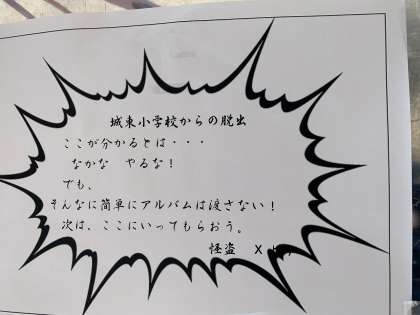 城東小学校からの脱出
ここが分かるとは・・・
なかな　やるな！
でも、
そんなに簡単にアルバムは渡さない！
次は、ここにいってもらおう。
怪盗　X より